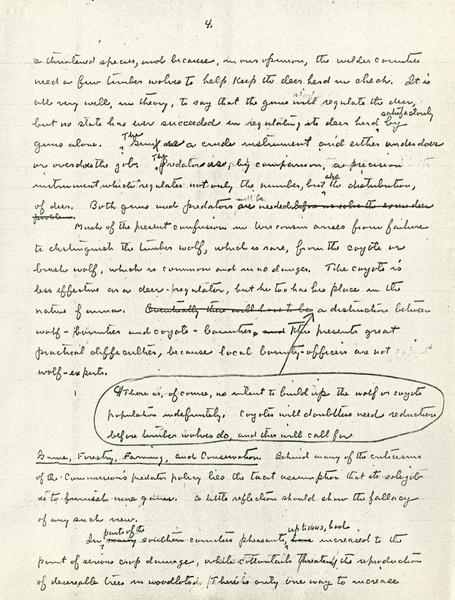 4.
a threatened species, and because, in our opinion, the wilder counties
need a few timber wolves to help keep the deer herd in check. It is
all very well, in theory, to say that the guns will regulate the deer,
but no state has ever succeeded in regulating its deer herd satisfactorily by
guns alone. The gun is a crude instrument and either underdoes
or overdoes the job. The predator is, by comparison, a precision
instrument which regulates not only the number, but also the distribution,
of deer. Both guns and predators will be needed before we solve the excess deer
problem.
Much of the present confusion in Wisconsin arises from failure
to distinguish the timber wolf, which is rare, from the coyote or
brush wolf, which is common and in no danger. The coyote is
less effective as a deer-regulator, but he too has his place in the
native fauna. Eventually there will have to be a distinction between
wolf-bounties and coyote-bounties, and this presents great
practical difficulties, because local bounty-officers are not
wolf-experts.
There is, of course, no intent to build up the wolf or coyote
population indefinitely. Coyotes will doubtless need reduction
before timber wolves do, and this will call for
Game, Forestry, Farming, and Conservation. Behind many of the criticisms
of the Commission's predator policy lies the tacit assumption that its sole job
is to furnish more game. A little reflection should show the fallacy
of any such view.
In parts of the southern counties pheasants, up to 1940, had increased to the
point of serious crop damage, while cottontails threaten the reproduction
of desireable trees in woodlots. There is only one way to increase